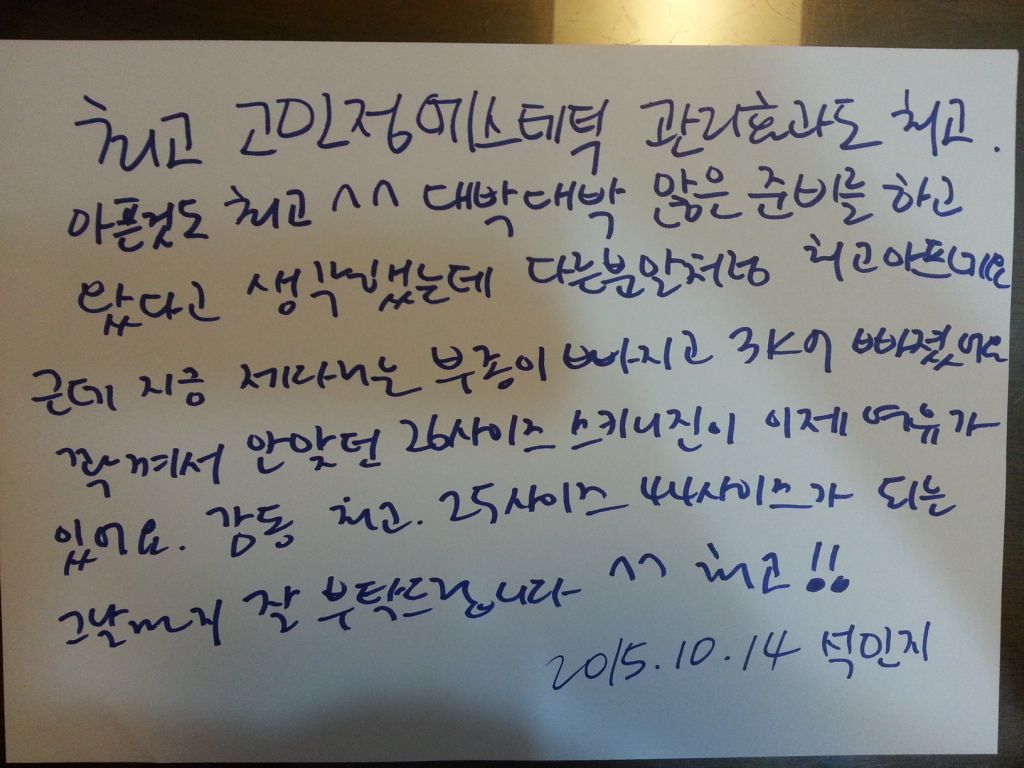 최고 고민정에스테틱 관리효과도 최고.
아픈것도 최고 ^^ 대박대박 많은 준비를 하고
왔다고 생각했는데 다른분말처럼 최고아프네요
근데 지금 제라니는 부종이 빠지고 3kg 빠졌어요
꽉껴서 안맞던 26사이즈 스키니진이 이제 여유가
있어요. 감동 최고. 25사이즈 44사이즈가 되는
그날까지 잘 부탁드립니다 ^^ 최고!!
2015.10.14 석민지